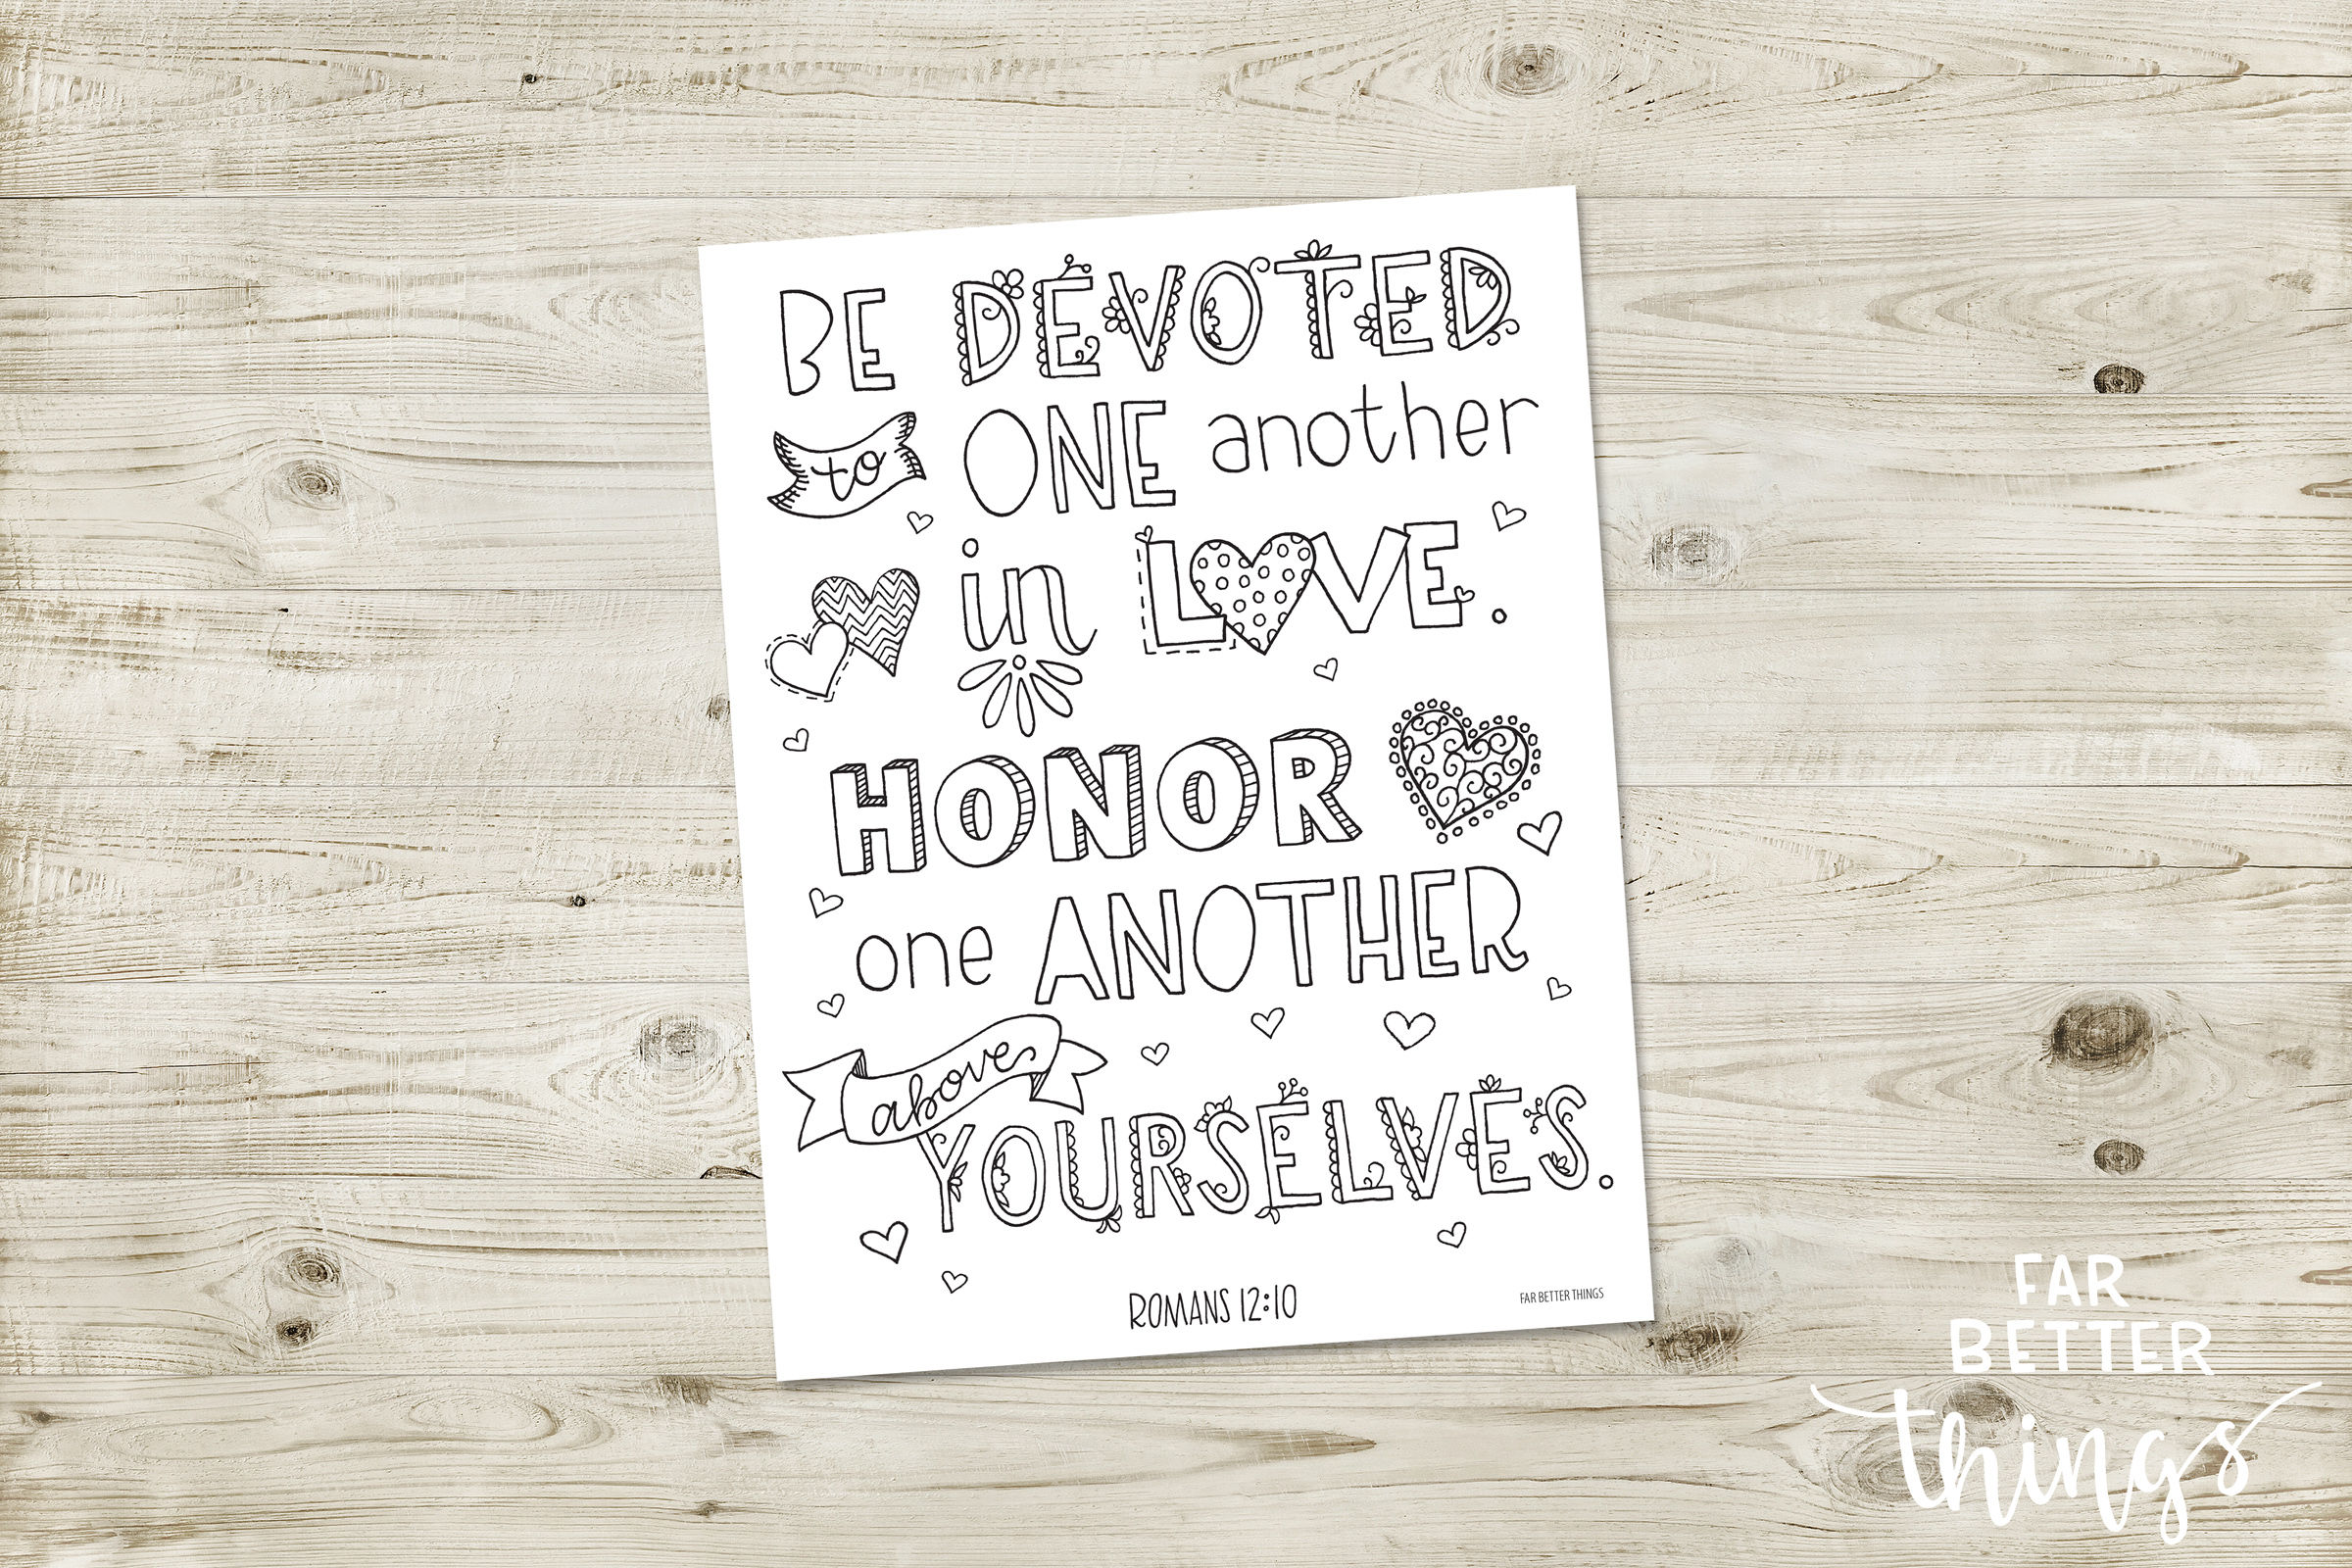 BE DEVOTED
to ONE another
in LOVE.
HONOR
one ANOTHER
above
YOURSELVES.
ROMANS 12:10
FAR BETTER THINGS
FAR
BETTER
things